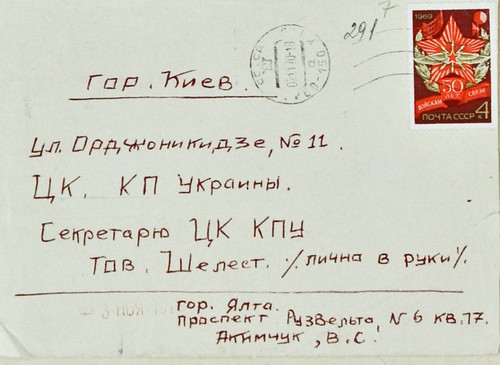 7
291
1969
50
ЛЕТ
ВОЙСКАМ СВЯЗИ
ПОЧТА СССР 4К
гор. Киев.
ул. Орджоникидзе, № 11.
ЦК. КП Украины.
Секретарю ЦК КПУ
Тов. Шелест. %лично в руки%.
гор. Ялта.
проспект Рузвельта, № 6 кв. 17.
Акимчук, В.С.